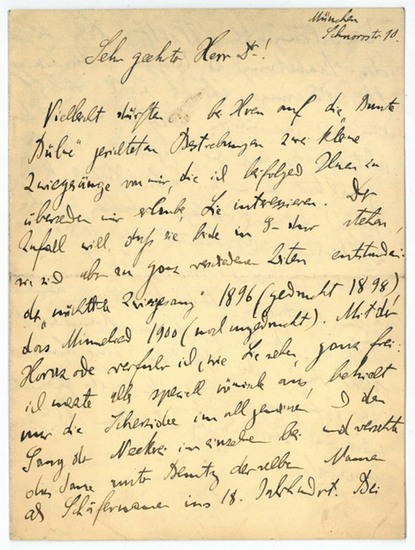 München
Schnorrstr 10.
Sehr geehrter Herr Dr!
Vielleicht dürften bei Ihren auf die "Bunte
Bühne" gerichteten Bestrebungen zwei kleine
Zwiegesänge von mir, die ich beifolgend Ihnen zu
übersenden mir erlaube, Sie interessieren. Der
Zufall will, daß sie beide in G-dur stehen,
sie sind aber zu ganz verschiedenen Zeiten entstanden:
der "nächtliche Zwiegesang" 1896 (gedruckt 1898)
das Minnelied 1900 (noch ungedruckt). Mit der
Horaz ode verfuhr ich, wie Sie sehen, ganz frei:
ich merzte alles speziell römische aus, behielt
nur die Scherzidee im allgemeinen, den
Gang der Neckerei im einzelnen bei und versetzte
das Ganze unter Benutzung derselben Namen
als Schäfernamen ins 18. Jahrhundert. Bei